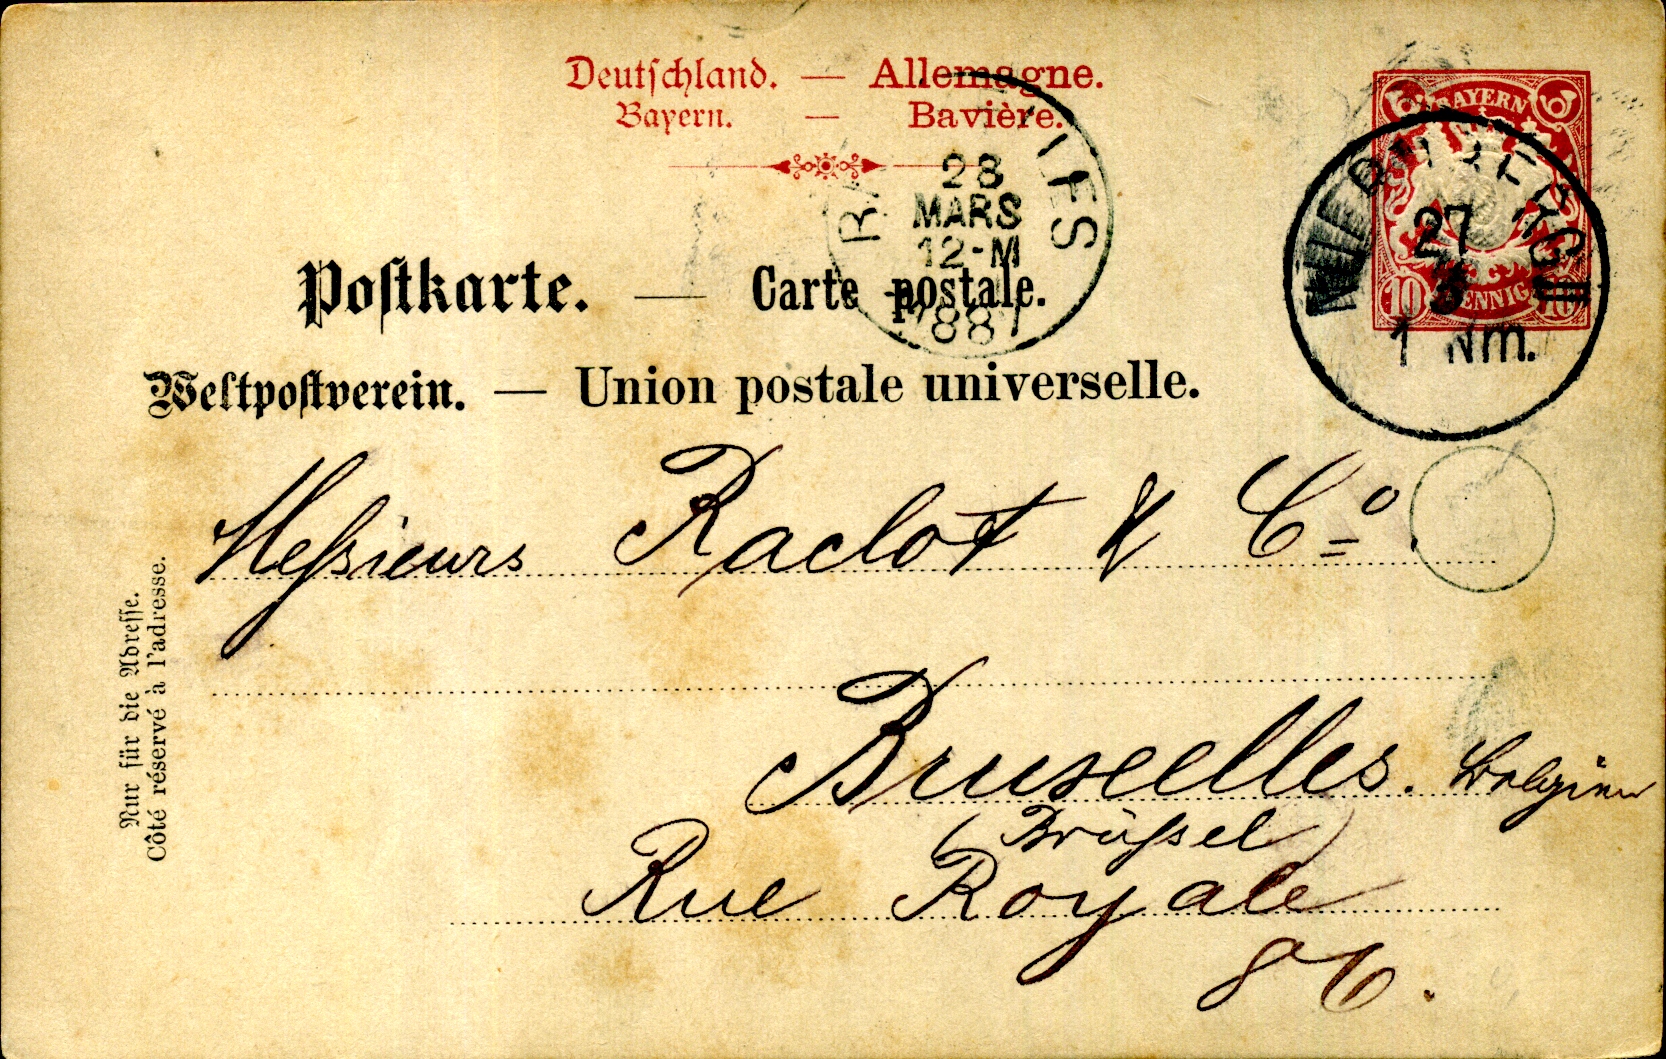 Deutschland. — Allemagne.
Bayern. — Bavière.
BAYERN
10 PFENNIG 10
27
3
1 Nm.
28
MARS
12-M
1887
Postkarte. — Carte postale.
Weltpostverein. — Union postale universelle.
Messieurs Raclot & Cº.
Bruxelles. Belgien
(Brüssel)
Rue Royale
86.
Nur für die Adresse.
Côté réservé à l'adresse.